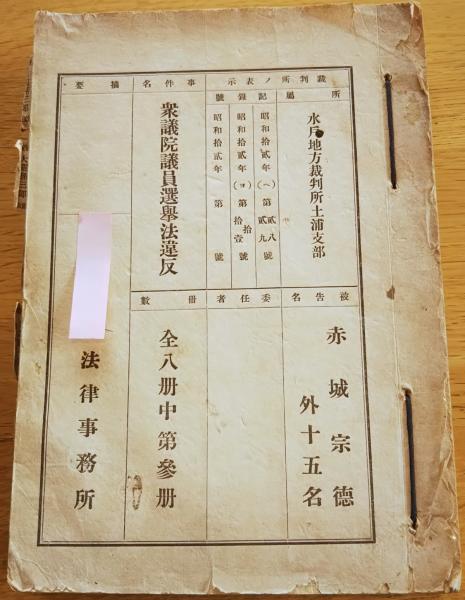 裁判所ノ表示
所屬
水戸地方裁判所土浦支部
記錄號
昭和拾貳年(へ)第貳八號
貳九
昭和拾貳年(ヨ)第拾號
拾壹
昭和拾貳年 第 號
事件名
衆議院議員選擧法違反
摘要
被告名
赤城宗德
外十五名
委任者
冊數
全八册中第參册
法律事務所